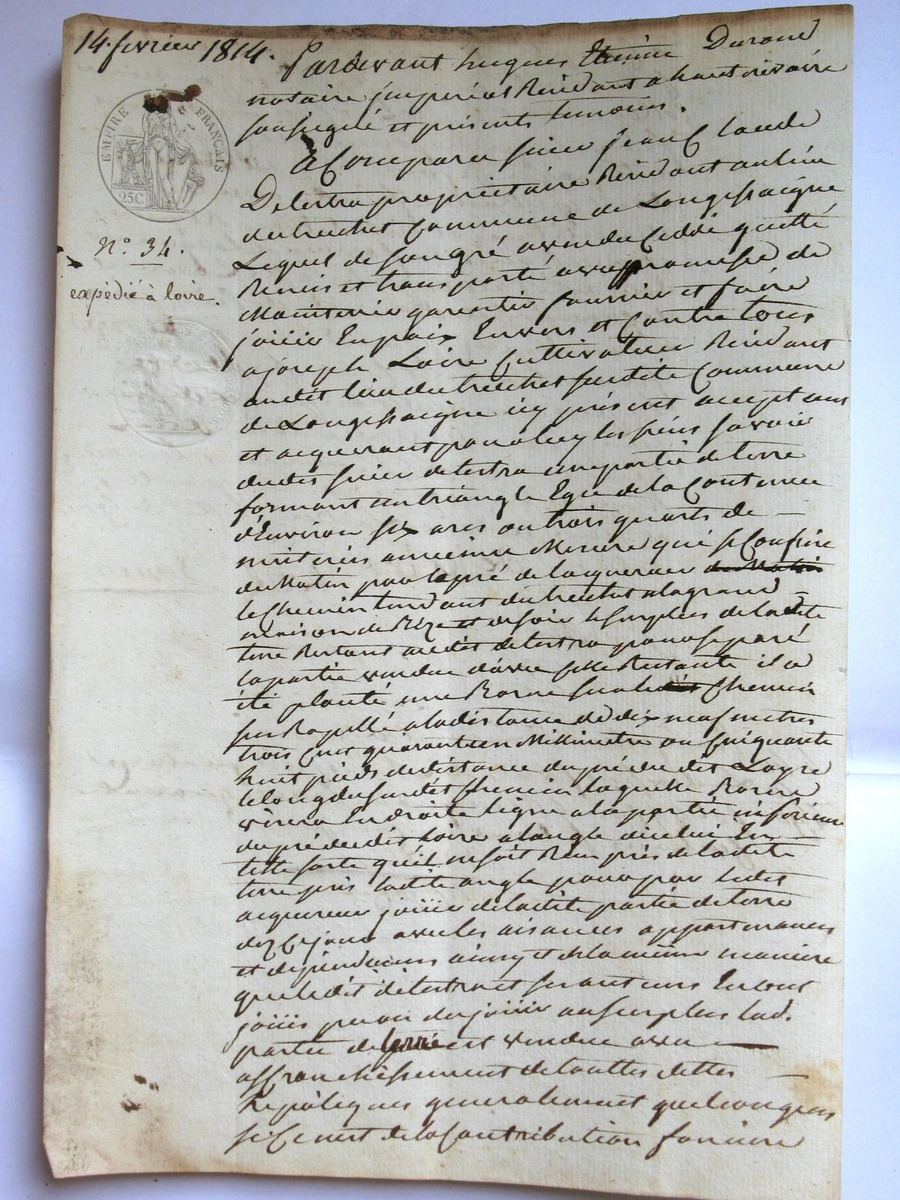 14. fevrier 1814.
Pardevant hugues Etienne Durand
notaire imperial Residant a hauterivoire
soussigné et présents temoins.
EMPIRE FRANÇAIS
25C
N° 34.
expédié à loire.
a Comparu sieur jean Claude
Delestra propriétaire Residant au lieu
du trechet Commune de Longessaigne
Lequel de son gré a vendu Ceddé quitté
Remis et transporté avec promesse de
Maintenir garentir fournir et faire
joüir En paix Envers et Contre tous
a joseph Loire Cultivateur Residant
audit lieu du trechet susdite Commune
de Longessaigne icy présent acceptant
et acquerant pour luy et les siens savoir
dudit sieur delestra une partie de terre
formant un triangle de la Contenue
d'Environ six ares ou trois quarts de
ancienne Mesure qui se Confine
du Matin par le pré de l'acquereur
le Chemin tendant du trechet a la grand
maison de et de soir le surplus de ladite
terre Restant audit delestra pour séparé
la partie vendue d'avec celle Restante il a
été planté une Borne sur le Chemin
sus Rapellé a la distance de dix neuf metres
trois Cent quarante un Millimetre ou Cinquante
huit pieds de distance du pré du dit Loyre
le long du susdit Chemin laquelle Borne
visera En droite ligne a la partie inferieure
du pré dudit Loire a l'angle d'icelui En
telle sorte qu'il ne soit Rien pris de ladite
terre près ladite angle pour par ledit
acquereur joüir de ladite partie de terre
dez Ce jour avec les aisances appartenances
et dependances ainsy et de la même maniere
que ledit delestra et ses auteurs En ont
joüis pu ou du joüir au surplus lad.
partie de terre est vendue avec
affranchissement de touttes dettes
hypoteques generalement quelconques
si Ce n'est de la Contribution fonciere